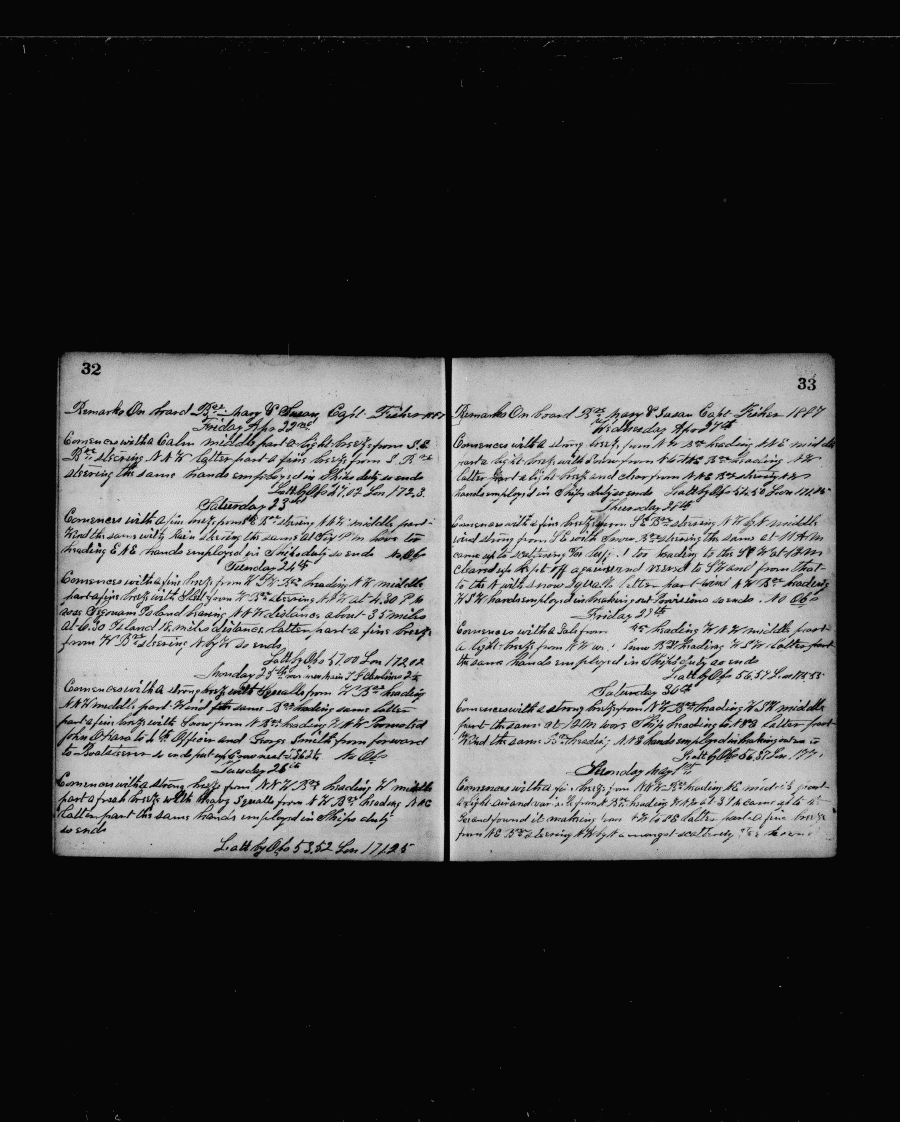 32
Remarks On board Bark Mary & Susan Capt Fisher 1887
Friday Apr 22nd
Comences with a Calm middle part a light breeze from S.E.
Bark steering N N W latter part a fine breeze from S Bark
steering the same hands employed in Ships duty so ends
Latt by Obs 47.02 Lon 172.3
Saturday 23rd
Comences with a fine breeze from Bark steering N N W middle part
Wind the same with Rain steering the same at P M hove to
heading E N E hands employed in Ships duty so ends No Obs
Sunday 24th
Comences with a fine breeze from W S W Bark heading N W middle
part a fine breeze with from W Bark steering N N W at 4.30 P M
Island baring N N W distance about 35 miles
at 6.30 Island 12 miles distance latter part a fine breeze
from W Bark steering N by W so ends
Latt by Obs Lon 172.02
Monday 25th
Comences with a strong breeze with Squalls from W Bark heading
N N W middle part Wind the same Bark heading same latter
part a fine breeze with Snow from N Bark heading W N W Promoted
John to 4th Officer and George Smith from forward
to Boatsteerer so ends No Obs
Tuesday 26th
Comences with a strong breeze from N N W Bark heading W middle
part a fresh breeze with heavy Squalls from N W Bark heading N N E
latter part the same hands employed in Ships duty
so ends
Latt by Obs 53.52 Lon 171.25
33
Remarks On board Bark Mary & Susan Capt Fisher 1887
Wednesday Apr 27th
Comences with a strong breeze from N W Bark heading N N E middle
part a light breeze with Snow from Bark heading N W
latter part a light breeze and clear from N N E Bark steering
hands employed in Ships duty so ends Latt by Obs 54.50 Lon
Thursday 28th
Comences with a fine breeze from S E Bark steering N W by N middle
wind strong from S E with Snow Bark steering the same at 11 A M
came up to heading to the S W at
cleared up kept off again wind to S W and from that
to the N with snow Squalls latter part wind N W Bark heading
W S W hands employed in breaking out Provisions so ends No Obs
Friday 29th
Comences with a Gale from heading W N W middle part
a light breeze from N W Bark heading W S W latter part
the same hands employed in Ships duty so ends
Latt by Obs 56.57 Lon
Saturday 30th
Comences with a strong breeze from N W Bark heading W S W middle
part the same at 12 M wore Ship heading latter part
Wind the same Bark heading N N E hands employed in breaking out
Latt by Obs 56.37 Lon 177
Sunday May 1st
Comences with a breeze from N N W Bark heading N E middle part
a light air and from Bark heading at 3 P M came up to
and found it making from latter part a fine breeze
from N E Bark steering N W by N amongst scattering